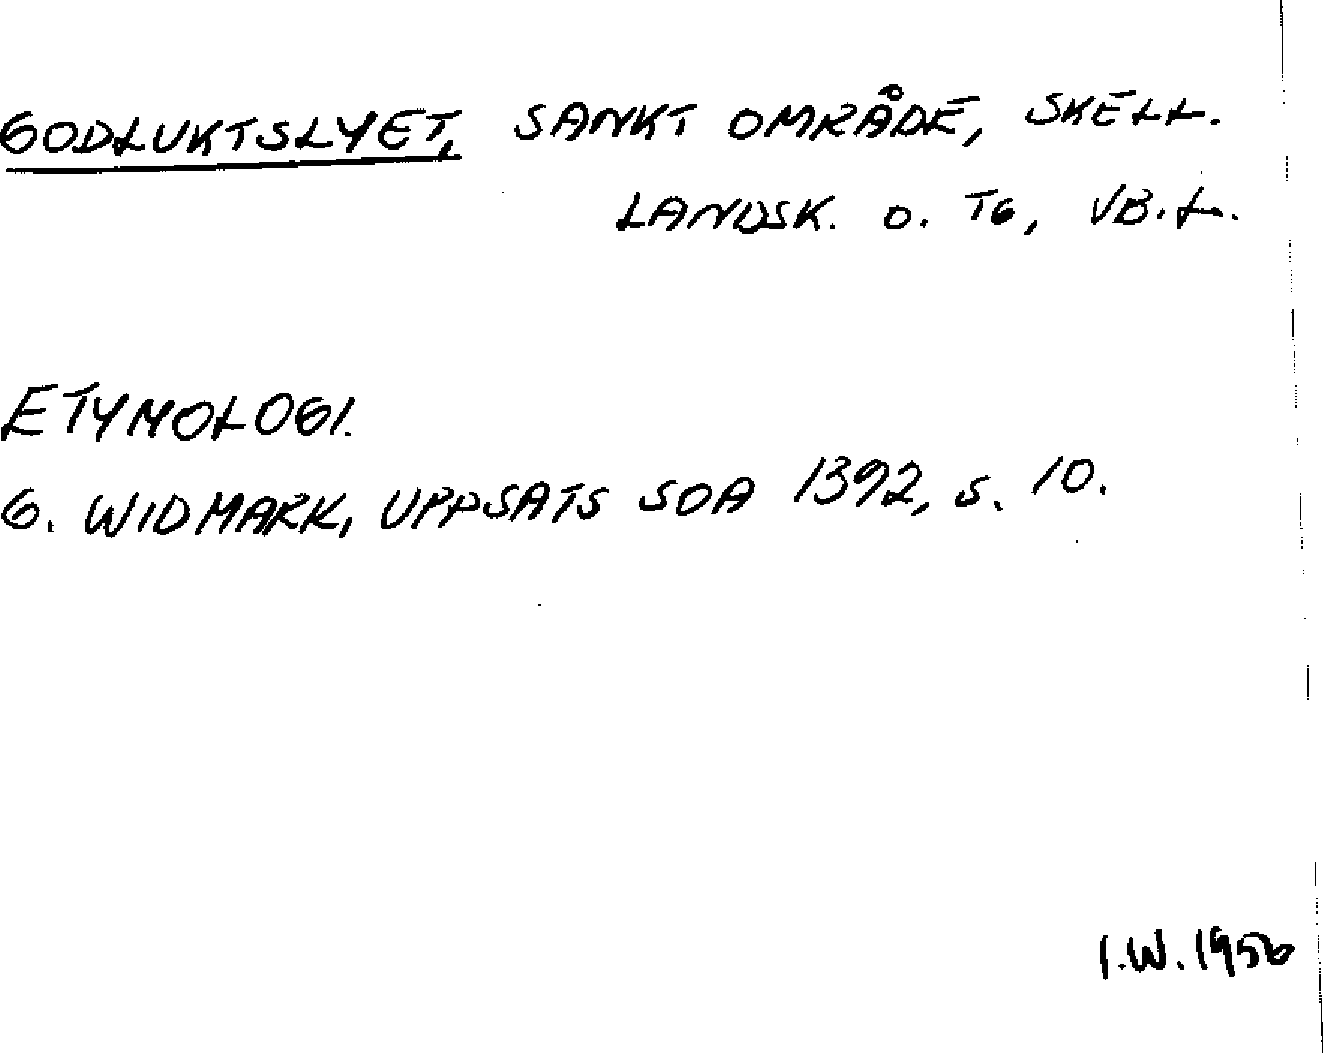 GODLUKTSLYET, SANKT OMRÅDE, SKELL.
LANDSK. O. TG, VB.L.
ETYMOLOGI.
G. WIDMARK, UPPSATS SOA 1392, S. 10.
I.W. 1956